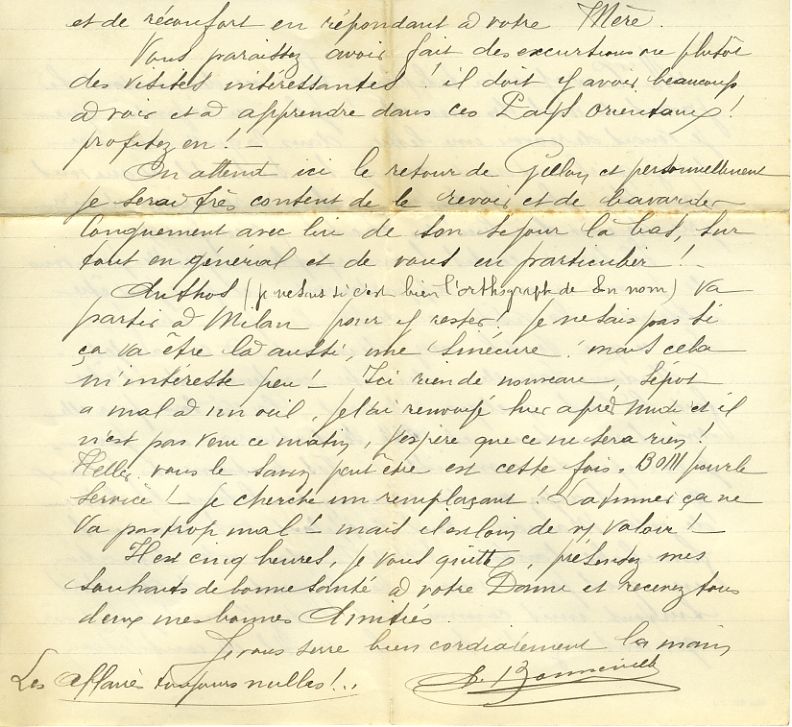 et de réconfort en répondant à votre Mère.
Vous paraissez avoir fait des excurtions ou plutôt
des visites intéressantes ! il doit y avoir beaucoup
à voir et à apprendre dans ces Pays orientaux !
profitez en ! -
On attend ici le retour de et personnellement
je serai très content de le revoir et de bavarder
longuement avec lui de son séjour là bas, sur
tout en général et de vous en particulier ! -
Anthos (je ne sais si c'est bien l'orthograph de son nom) va
partir à Milan pour y rester ! je ne sais pas si
ça va être là aussi, une sinécure ! mais cela
m'intéresse peu ! - Ici rien de nouveau,
a mal à un oeil, je l'ai renvoyé hier après midi et il
n'est pas venu ce matin, j'espère que ce ne sera rien !
Heller, vous le savez peut être est cette fois. BON pour le
Service ! - je cherche un remplaçant ! ça ne
va pas trop mal ! - mais il est loin de valoir ! -
Il est cinq heures, je vous quitte, présentez mes
souhaits de bonne santé à votre Dame et recevez tous
deux mes bonnes Amitiés.
Je vous serre bien cordialement la main
Les affaires toujours nulles ! ..